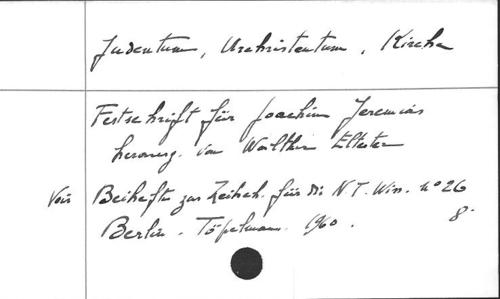 Judentum, Urchristentum, Kirche
Festschrift für Joachim Jeremias
herausg. von Walther Eltester
Voir Beihefte zur Zeitsch. für die N T. Wiss. no 26
Berlin - Töpelmann. 1960. 8°